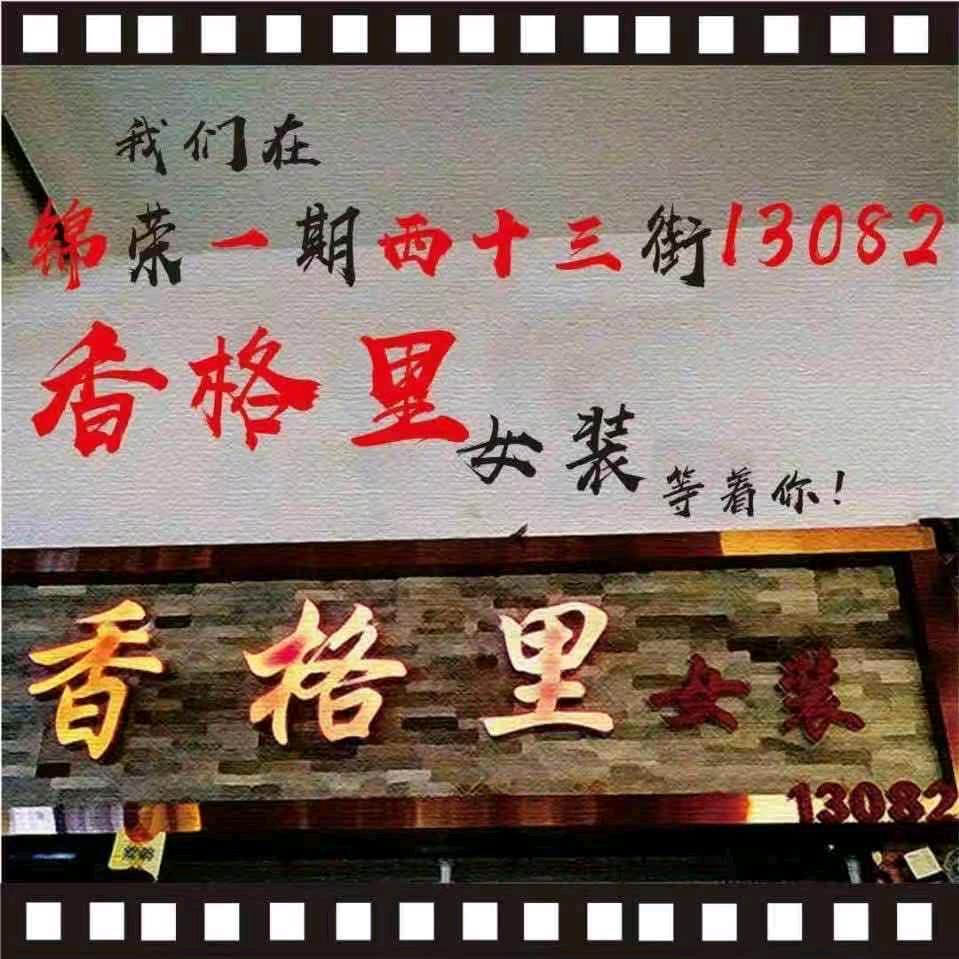 我们在
锦荣一期西十三街13082
香格里女装等着你!
香格里女装
13082